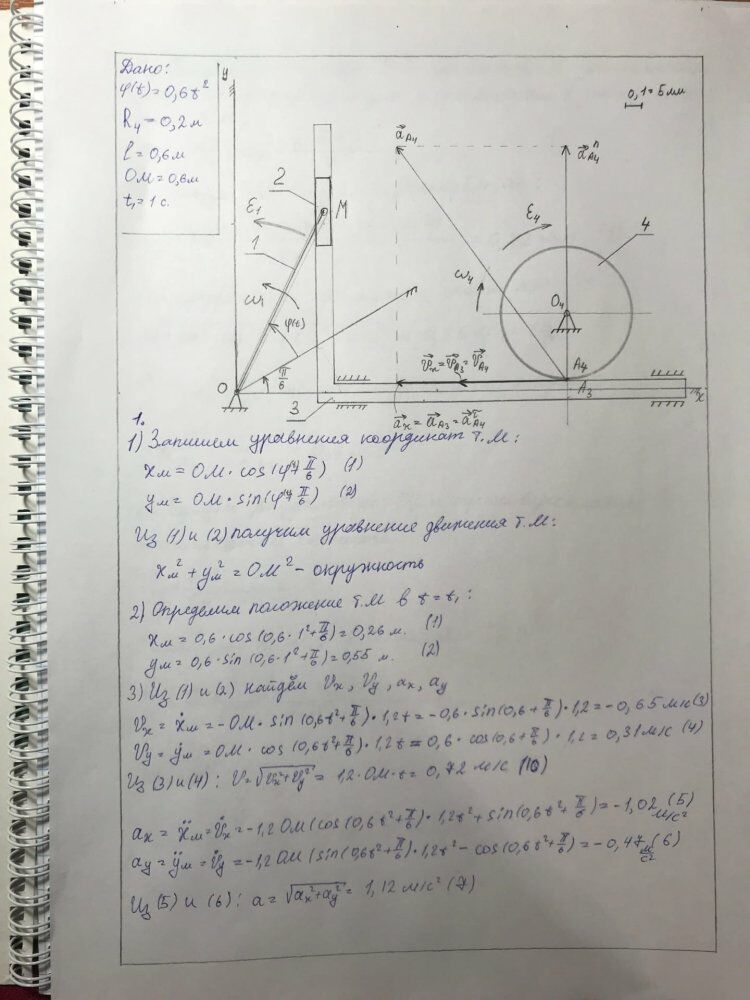 Дано:
φ(t)=0,6t²
R₄=0,2м
l=0,6м
OM=0,6м
t₁=1 с.
y
0,1=5мм
a⃗A₄
a⃗ⁿA₄
2
M
ε₁
1
ε₄
4
ω₁
ω₄
O₄
φ(t)
π/6
v⃗x=v⃗A₃=v⃗A₄
A₄
O
3
A₃
x
a⃗x=a⃗A₃=a⃗ᵗA₄
1.
1) Запишем уравнения координат т.М:
xм=OM·cos(φ+π/6) (1)
yм=OM·sin(φ+π/6) (2)
Из (1) и (2) получим уравнение движения т.М:
xм²+yм²=OM² - окружность
2) Определим положение т.М в t=t₁:
xм=0,6·cos(0,6·1²+π/6)=0,26 м. (1)
yм=0,6·sin(0,6·1²+π/6)=0,55 м. (2)
3) Из (1) и (2) найдём Vx, Vy, ax, ay
Vx=ẋм=-OM·sin(0,6t²+π/6)·1,2t=-0,6·sin(0,6+π/6)·1,2=-0,65м/с(3)
Vy=ẏм=OM·cos(0,6t²+π/6)·1,2t=0,6·cos(0,6+π/6)·1,2=0,31м/с (4)
Из (3) и (4): V=√(Vx²+Vy²)=1,2·OM·t=0,72 м/с (10)
ax=ẍм=V̇x=-1,2OM(cos(0,6t²+π/6)·1,2t²+sin(0,6t²+π/6)=-1,02 м/с² (5)
ay=ÿм=V̇y=-1,2OM(sin(0,6t²+π/6)·1,2t²-cos(0,6t²+π/6)=-0,47 м/с² (6)
Из (5) и (6): a=√(ax²+ay²)=1,12м/с² (7)